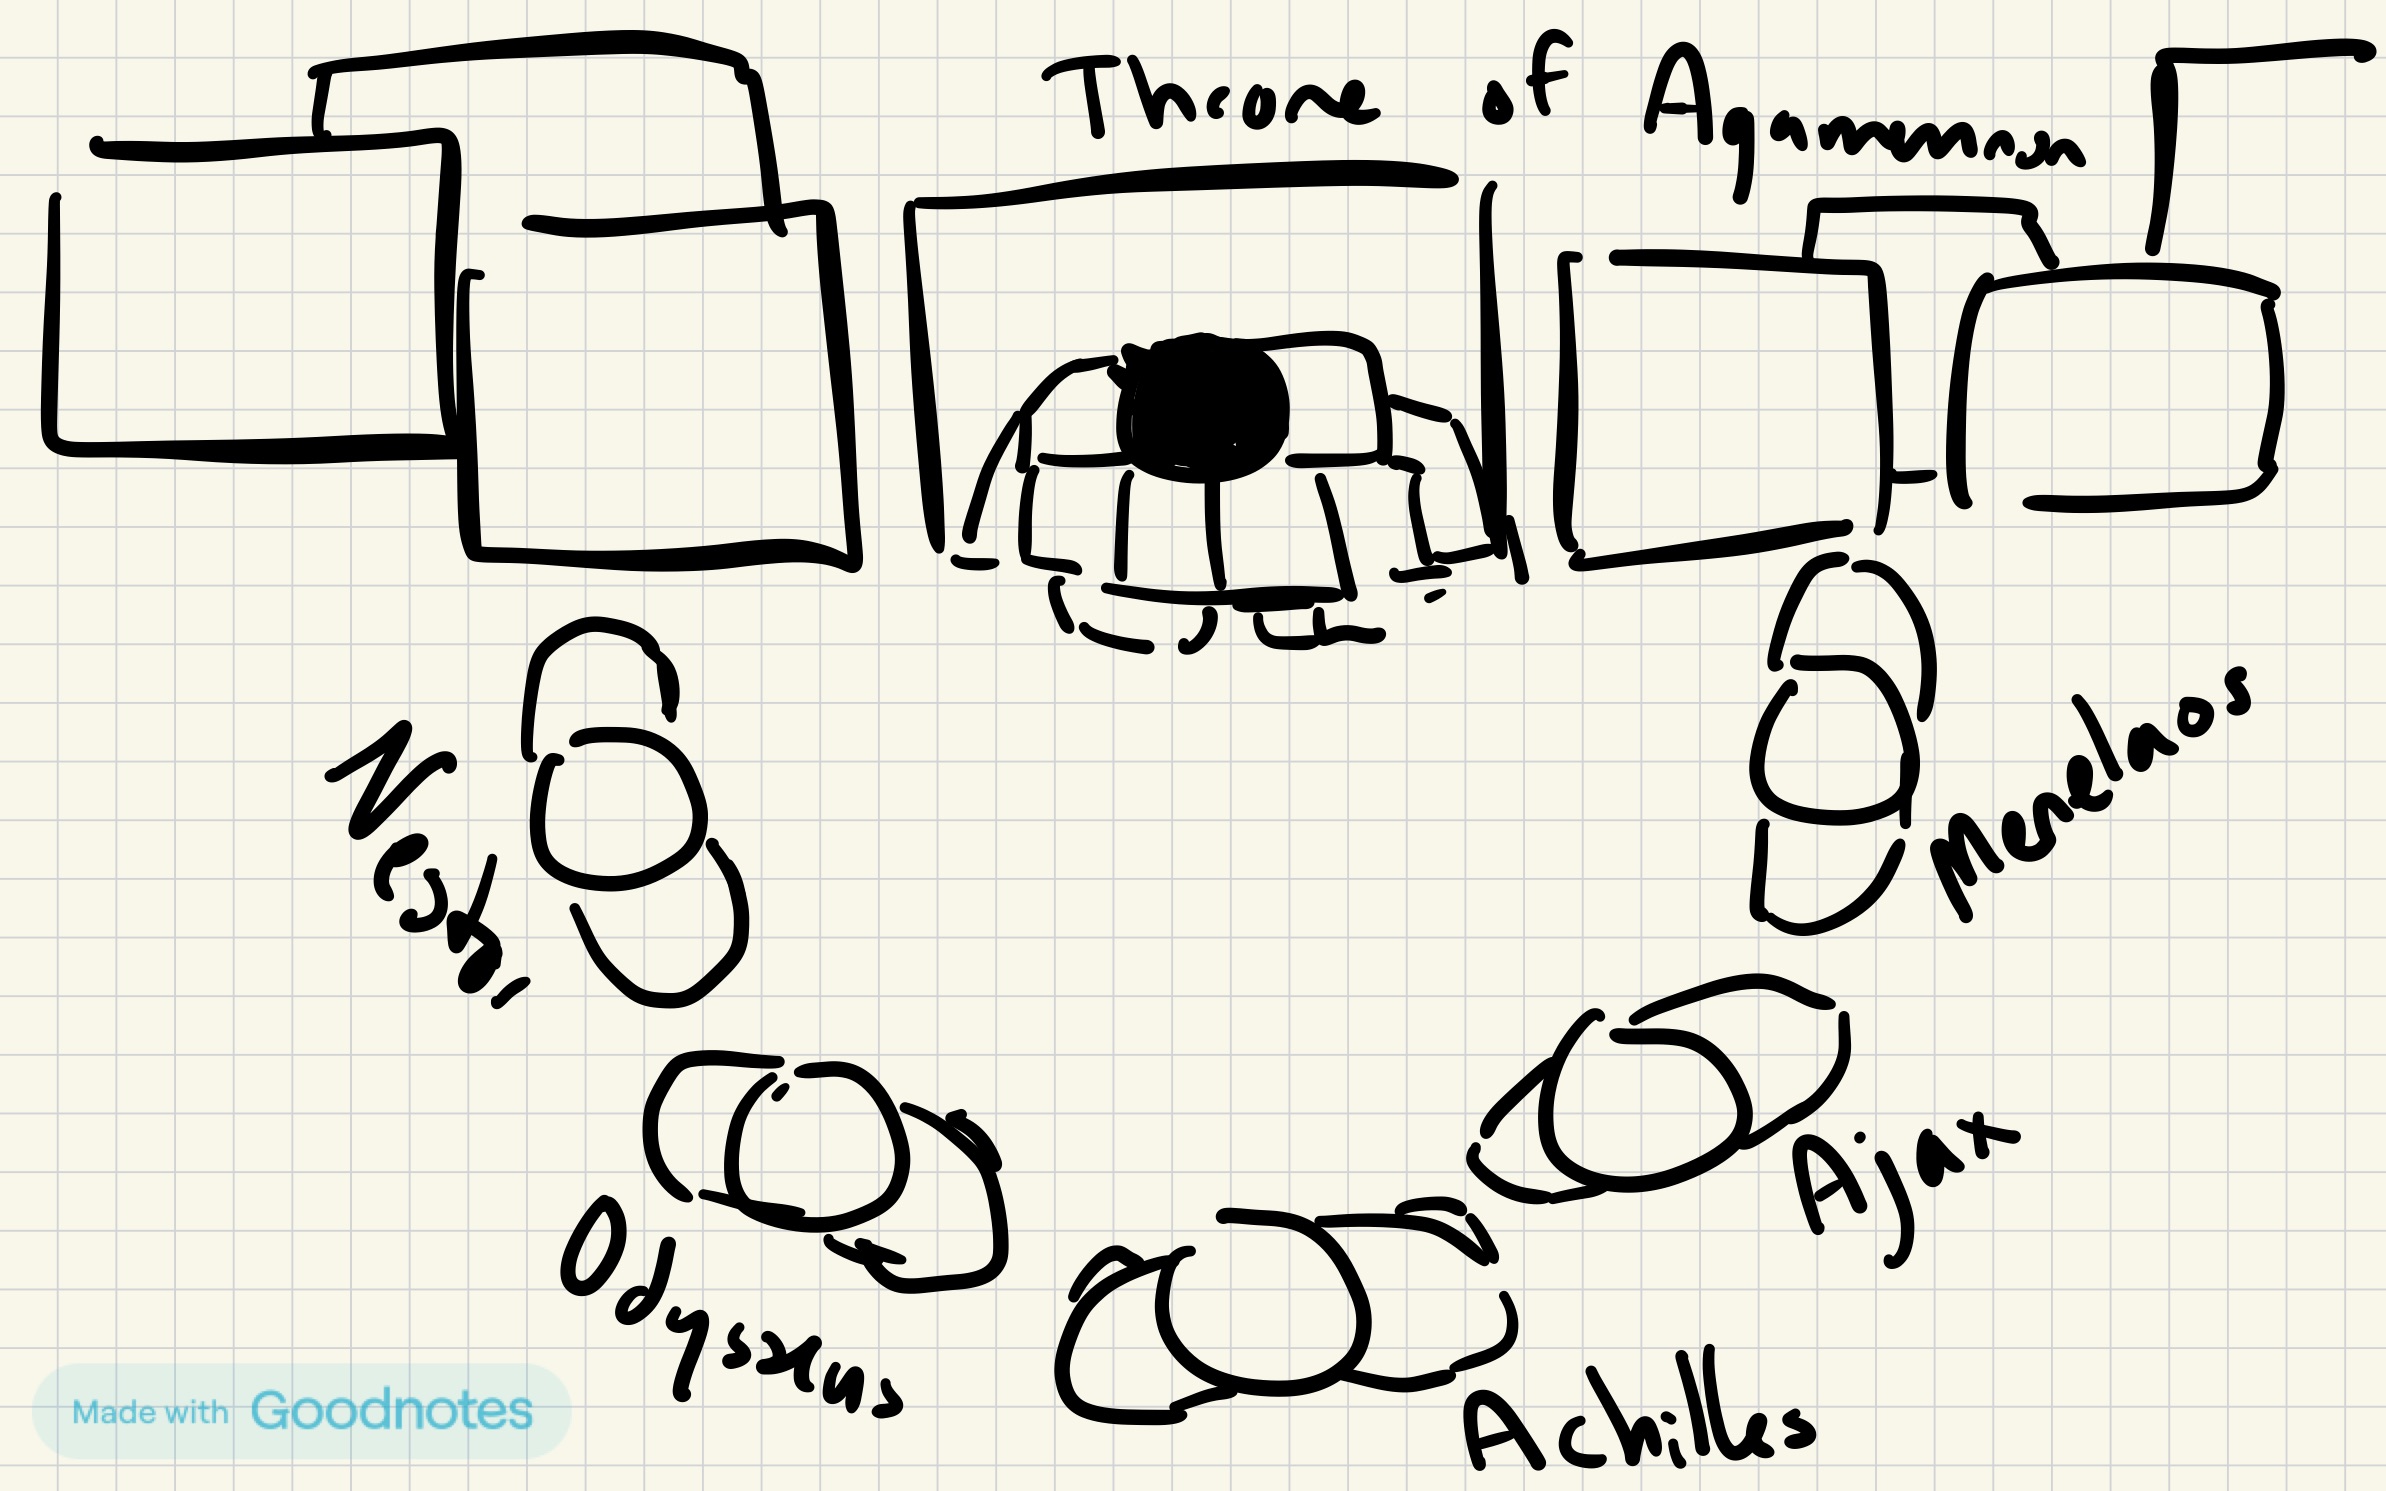 Throne of Agammemnon
Nestor
Menelaos
Ajax
Odysseus
Achilles
Made with Goodnotes